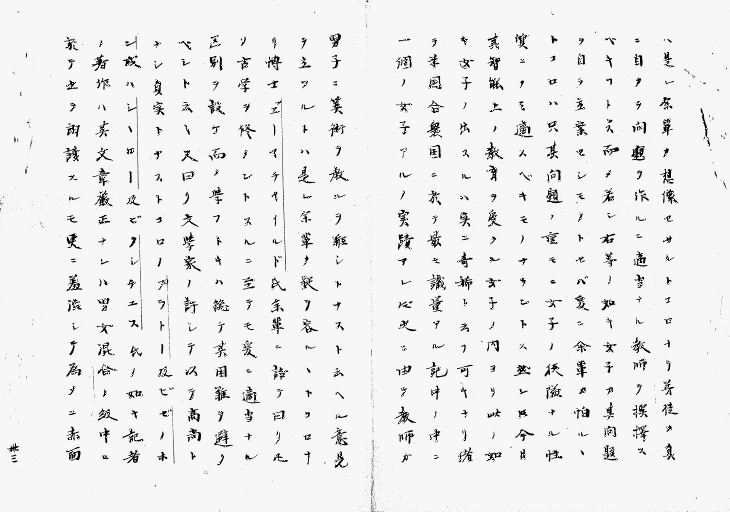 ハ是レ余輩ノ想像セサルトコロナリ若徒ノ真
ニ自ラ問題ヲ作ルニ適当ナル教師ヲ撰擇ス
ベキフト又而メ若シ右等ノ如キ女子カ其問題
ヲ自ラ至業セシモノトセバ爰ニ余輩カ怕ルヽ
トコロハ只其問題ノ重モニ女子ノ狭隘ナル性
質ニノミ適スベキモノナラントス然レ𪜈今日
其智能上ノ教育ヲ受クル女子ノ内ヨリ此ノ如
キ女子ノ出スルハ実ニ奇稀ト云フ可キナリ偖
ヲ米国合衆国ニ於テ最モ識量アル記中ノ中ニ
一個ノ女子アルノ実蹟アレ𪜈之ニ由ヲ教師カ
男子ニ算術ヲ教ルヲ難シトナスト云ヘル意見
ヲ立ツルトハ是レ余輩ノ疑ヲ容ルヽトコロナ
リ博士ヱーマチヤイルド氏余輩ニ語テ曰リ凡
ソ古学ヲ修ラントスルニ至テモ爰ニ適当ナル
区別ヲ設ケ而ノ学フトキハ能テ其困難ヲ避ク
ベシト云ヒ又曰ク文学家ノ許シテ以テ高尚ト
ナシ真実トナストコロノプラトー及ビゼノホ
ン或ハシーロー及ビタシチユス氏ノ如キ記者
ノ著作ハ其文章厳正ナレハ男女混合ノ級中ニ
於テ之ヲ誦読スルモ更ニ羞渋シテ為メニ赤面
卅三